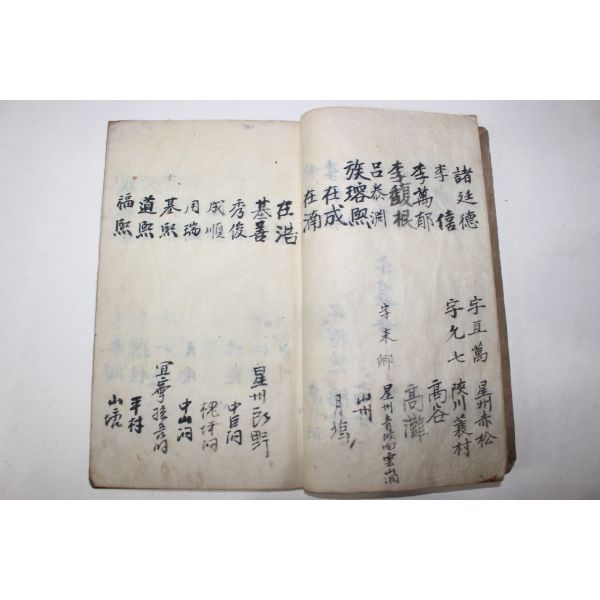 諸廷德 字亘萬 星州赤松
李僖 字允七 陜川蓑村
李萬郁 高谷
李馥根 高灘
呂泰淵 字末卿 星州青坡面雲山洞
族瑢熙 山州
李在成 月塢
在湳
在浩
基善 星州
秀俊 中巨洞
成順 槐坪洞
用瑞 中山洞
基熙 宜寧
道熙 平村
福熙